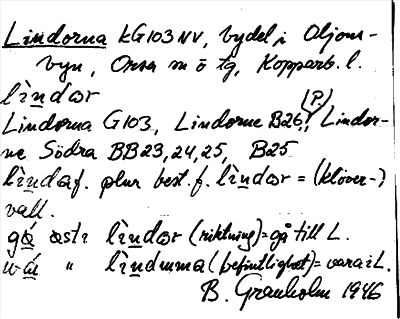 Lindorna kG103NV, bydel i Oljons-
byn, Orsa m ö tg, Kopparb. l.
lìndor
Lindorna G103, Lindorne B26 (P)!, Lindor-
ne Södra BB23,24,25, B25
lìnda f. plur best. f. lìndor = (klöver-)
vall.
gå̀ lìndor (riktning) = gå till L.
" lìndumma (befintlighet) = vara i L.
B. Granholm 1946